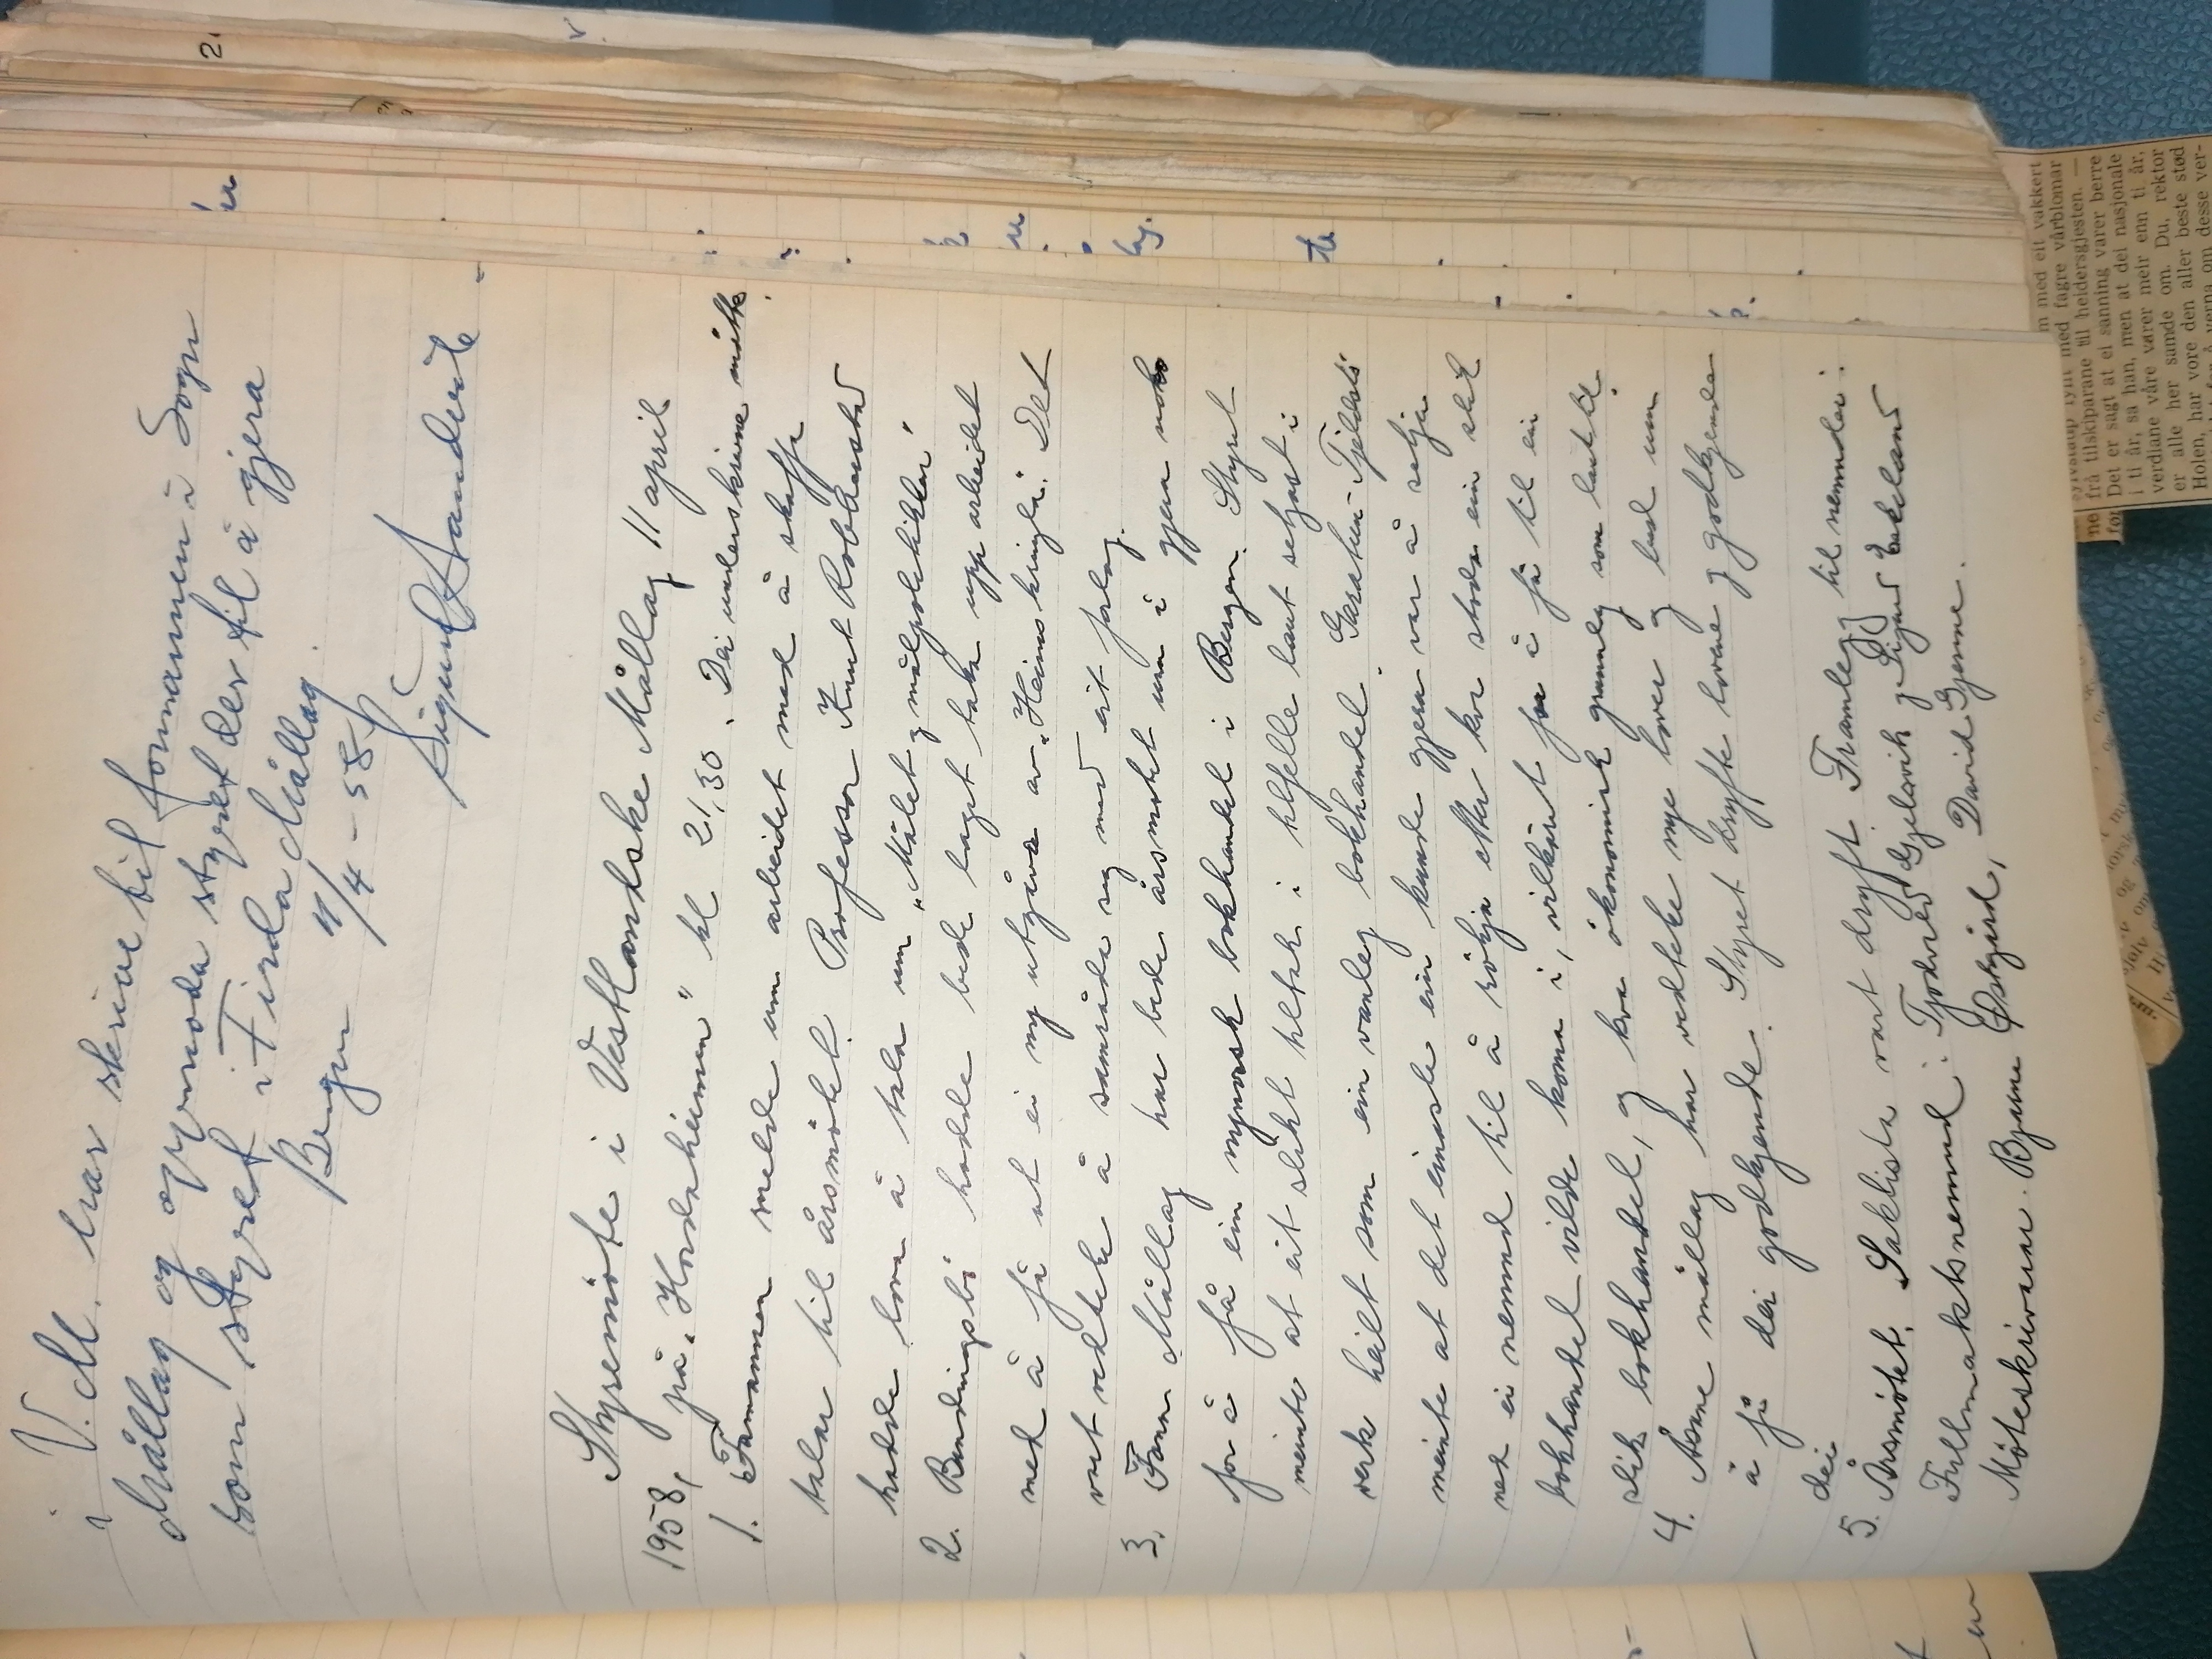 i V.M. har skrive til formannen i Sogn
Mållag og oppmoda styret der til å gjera
som styret i Firda Mållag.
Bergen 11/4 - 58.
Sigurd Sandvik
Styremøte i Vestlandske Mållag 11 april
1958, på "Hordaheimen" kl 21,30. Dei underskrivne møtte.
1. Formannen melde um arbeidet med å skaffe
talar til årsmøtet. Professor Knut Robberstad
hadde lova å tala um "Målet og målpolitikken"
2. Bundingsbi hadde bede laget taka upp arbeidet
med å få ut ei ny utgåva av "Heimskringla". Det
vart vedteke å samråda seg med eit forlag.
3. Fana Mållag har bede årsmøtet um å gjera noko
for å få ein nynorsk bokhandel i Bergen. Styret
meinte at eit slikt tiltak i tilfelle laut setjast i
verk heilt som ein vanleg bokhandel. Garathun-Tjeldstø
meinte at det einaste ein kunde gjera var å velja
ned ei nemnd til å søkja etter kor stoda ein slik
bokhandel vilde koma i, vilkåret for å få til ein
slik bokhandel, og kva økonomisk grunnlag som laut til.
4. Åsane mållag har vedteke nye lover og bed um
å få dei godkjende. Styret drøfte lovene og godkjende
dei
5. Årsmøtet. Saklista vart drøft. Framlegg til nemnder:
Fullmaktsnemnd: Gjelsvik og Sigurd Eikeland
Møteskrivarar. Bjarne Østgård, David Gjerme.
m med eit vakkert
med fagre vårblomar
frå tilskiparane til heidersgjesten. —
Det er sagt at ei sanning varer berre
i ti år, sa han, men at dei nasjonale
verdiane våre varer meir enn ti år,
er alle her samde om. Du, rektor
Holen, har vore den aller beste stød